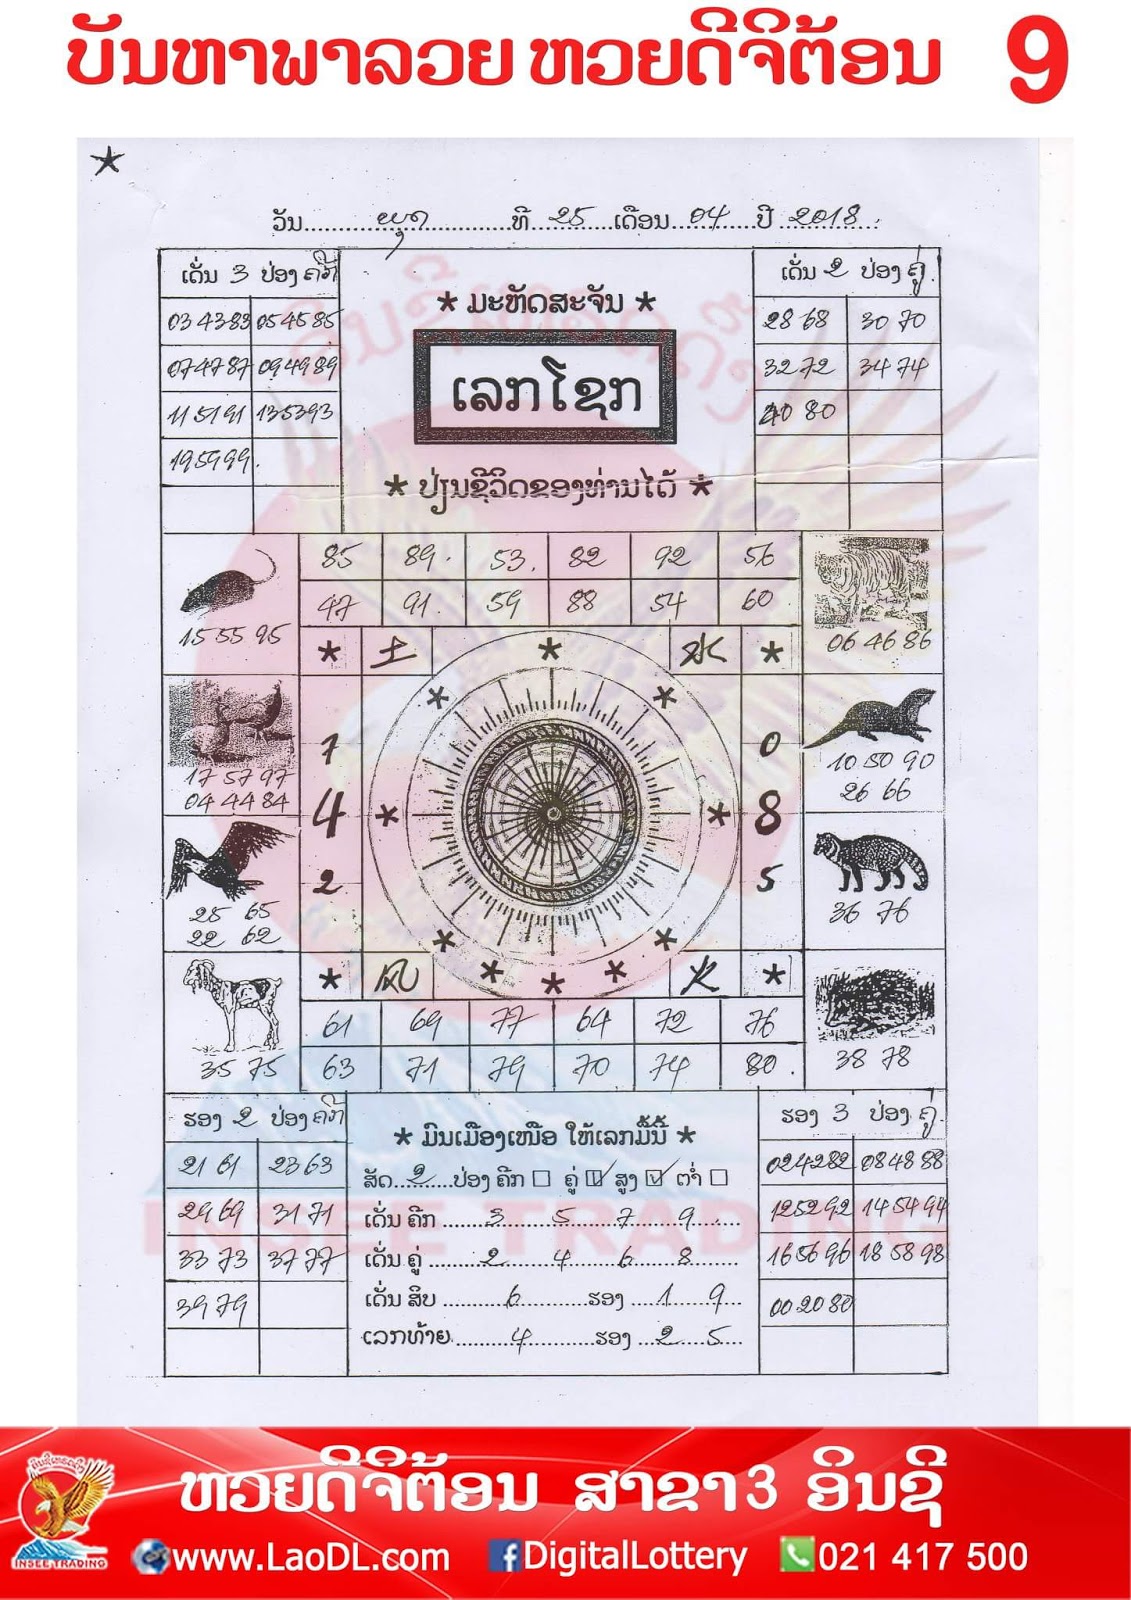 ບັນຫາພາລວຍ ຫວຍດີຈິຕ້ອນ 9
ວັນ ພຸດ ທີ 25 ເດືອນ 04 ປີ 2018
ເດັ່ນ 3 ປ່ອງ ຄີກ
03 43 83 05 45 85
07 47 87 09 49 89
11 51 91 13 53 93
19 59 99
★ ມະຫັດສະຈັນ ★
ເລກໂຊກ
★ ປ່ຽນຊີວິດຂອງທ່ານໄດ້ ★
ເດັ່ນ 2 ປ່ອງ ຄູ່
28 68 30 70
32 72 34 74
40 80
85 89 53 82 92 56
47 91 59 88 54 60
15 55 95
06 46 86
★ 土 ★ 水 ★
17 57 97
04 44 84
7
4
2
0
8
5
10 50 90
26 66
25 65
22 62
36 76
★ 风 火 ★
35 75
38 78
61 69 77 64 72 76
63 71 79 70 74 80
ຮອງ 2 ປ່ອງ ຄີກ
21 61 23 63
29 69 31 71
33 73 37 77
39 79
★ ມົນເມືອງເໜືອ ໃຫ້ເລກມື້ນີ້ ★
ສັດ 2 ປ່ອງ ຄີກ ☐ ຄູ່ ☑ ສູງ ☑ ຕ່ຳ ☐
ເດັ່ນ ຄີກ 3 5 7 9
ເດັ່ນ ຄູ່ 2 4 6 8
ເດັ່ນ ສິບ 6 ຮອງ 1 9
ເລກທ້າຍ 4 ຮອງ 2 5
ຮອງ 3 ປ່ອງ ຄູ່
02 42 82 08 48 88
12 52 92 14 54 94
16 56 96 18 58 98
00 20 80
INSEE TRADING
ຫວຍດີຈິຕ້ອນ ສາຂາ3 ອິນຊີ
INSEE TRADING
www.LaoDL.com DigitalLottery 021 417 500